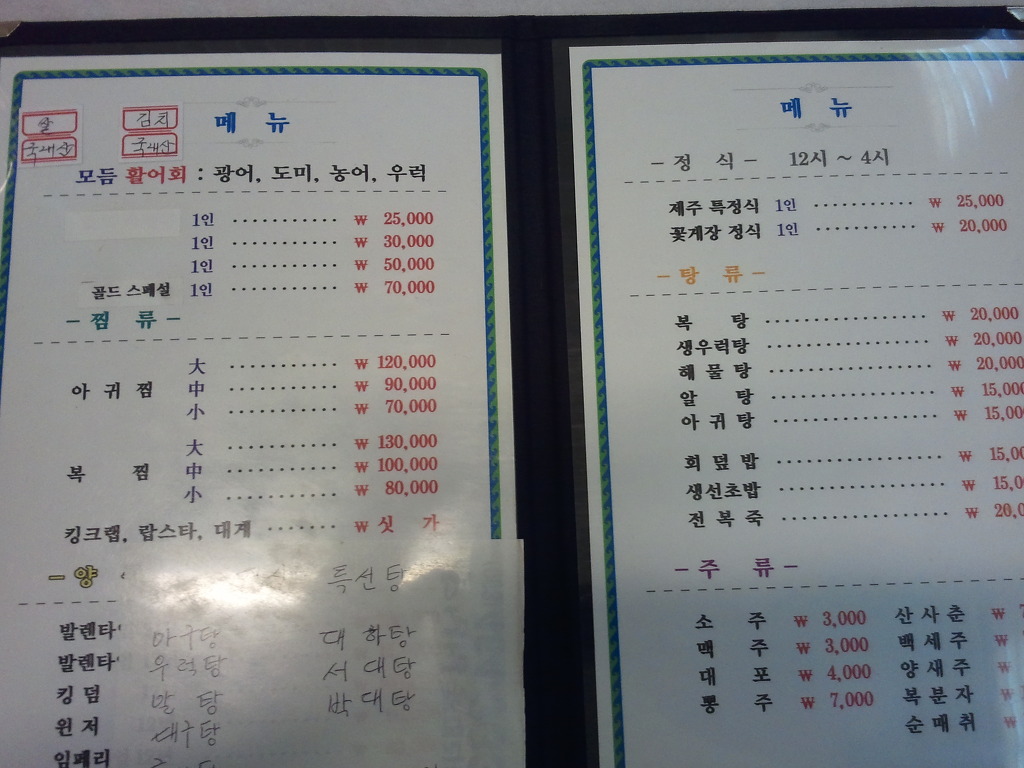 쌀
국내산
김치
국내산
메 뉴
모듬 활어회 : 광어, 도미, 농어, 우럭
1인 ₩ 25,000
1인 ₩ 30,000
1인 ₩ 50,000
골드 스페셜 1인 ₩ 70,000
- 찜 류 -
아 귀 찜
大 ₩ 120,000
中 ₩ 90,000
小 ₩ 70,000
복 찜
大 ₩ 130,000
中 ₩ 100,000
小 ₩ 80,000
킹크랩, 랍스타, 대게 ₩ 싯 가
- 양
발렌타
발렌타
킹 덤
윈 저
임페리
특선탕
아구탕 대 하탕
우럭탕 서 대탕
알 탕 박 대탕
대구탕
메 뉴
- 정 식 - 12시 ~ 4시
제주 특정식 1인 ₩ 25,000
꽃게장 정식 1인 ₩ 20,000
- 탕 류 -
복 탕 ₩ 20,000
생우럭탕 ₩ 20,000
해 물 탕 ₩ 20,000
알 탕 ₩ 15,000
아 귀 탕 ₩ 15,00
회 덮 밥 ₩ 15,00
생선초밥 ₩ 15,0
전 복 죽 ₩ 20,0
- 주 류 -
소 주 ₩ 3,000 산 사 춘 ₩ 7
맥 주 ₩ 3,000 백 세 주 ₩
대 포 ₩ 4,000 양 새 주 ₩
뽕 주 ₩ 7,000 복 분 자 ₩
순 매 취 ₩